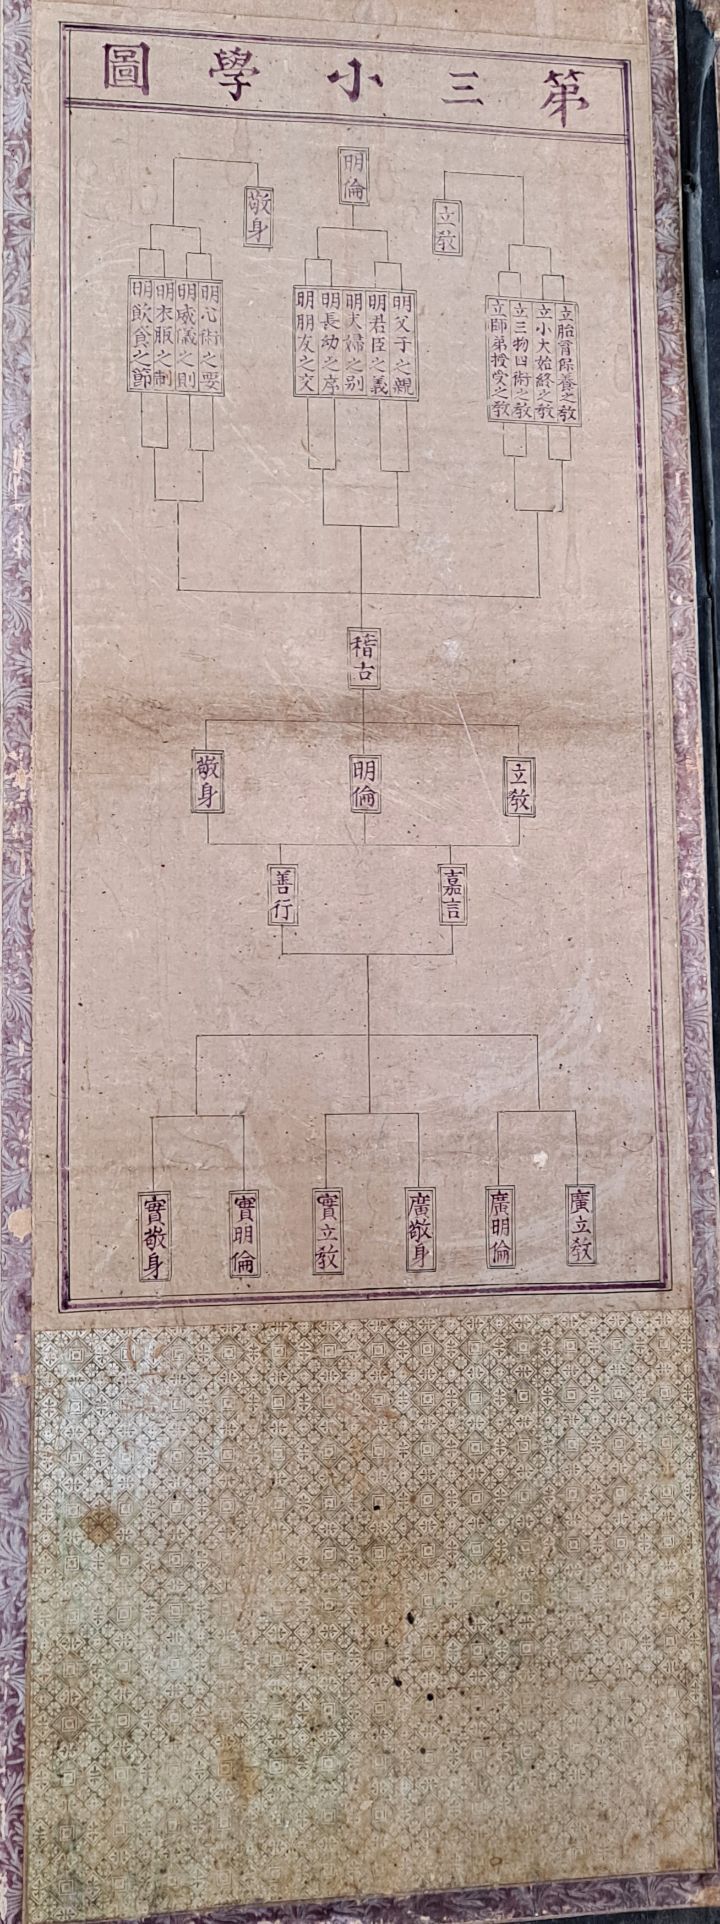 第三小學圖
立教
立胎育保養之教
立小大始終之教
立三物四術之教
立師弟授受之教
明倫
明父子之親
明君臣之義
明夫婦之別
明長幼之序
明朋友之交
敬身
明心術之要
明威儀之則
明衣服之制
明飲食之節
稽古
立教
明倫
敬身
嘉言
善行
廣立教
廣明倫
廣敬身
實立教
實明倫
實敬身